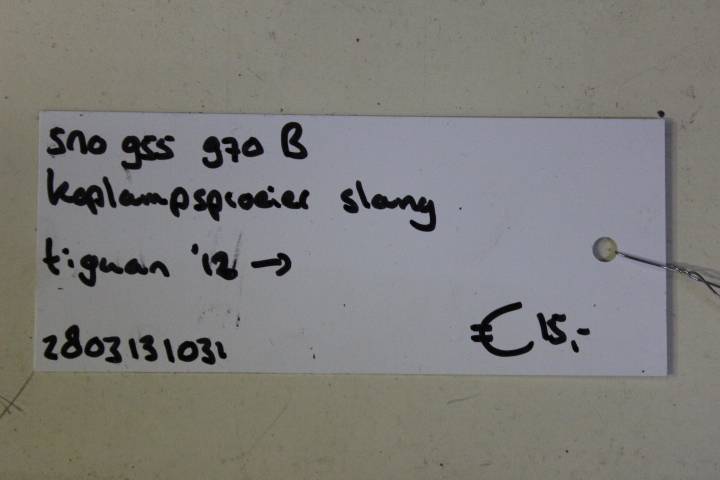 5N0 955 970 B
koplampsproeier slang
tiguan '12 →
2803131031
€ 15,-